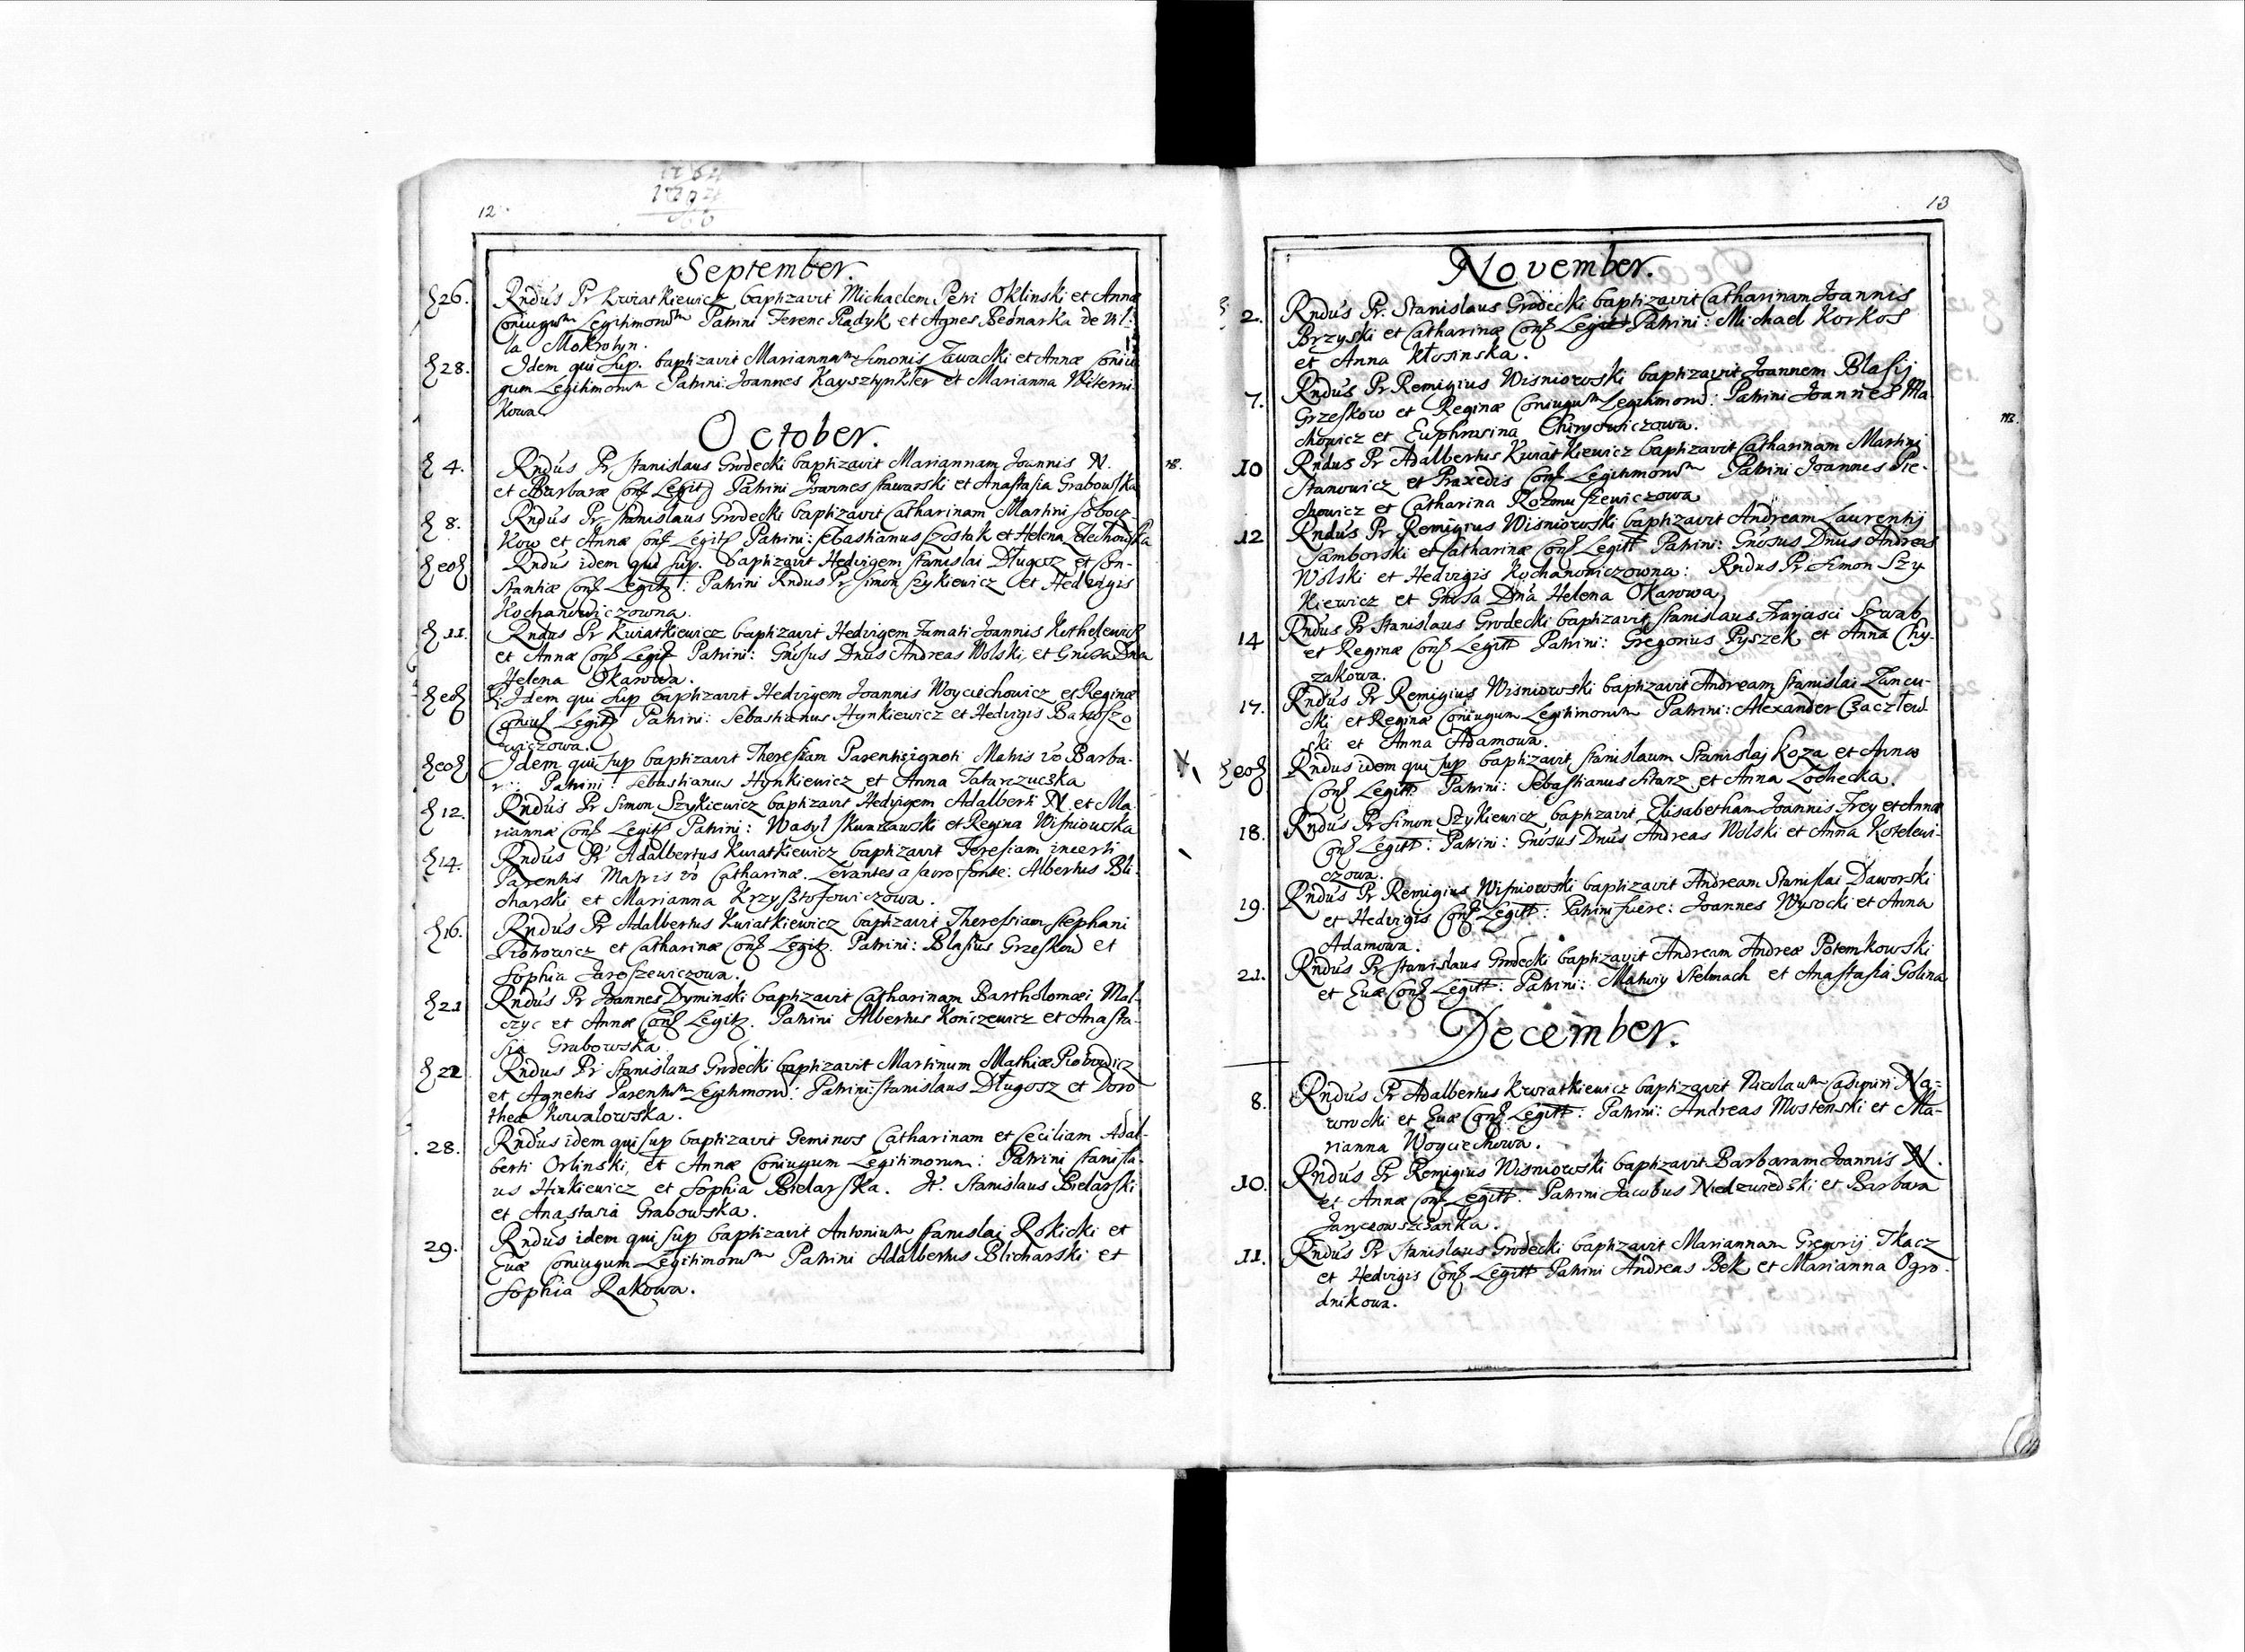 12
September.
26. Rndus Pr Kwiatkiewicz baptizavit Michaelem Petri Oklinski et Annæ
Coniugum Legitimorum Patrini Ferenc Piądyk et Agnes Bednarka de vil-
la Mokrotyn.
28. Idem qui sup. baptizavit Mariannam Simonis Zawacki et Annæ Coniu
gum Legitimorum Patrini: Joannes Kaysztynkler et Marianna Witerni
kowa
October.
4. Rndus Pr Stanislaus Grodecki baptizavit Mariannam Joannis N.
et Barbaræ Conj Legit Patrini Joannes Stawarski et Anastasia Grabowska
8. Rndus Pr Stanislaus Grodecki baptizavit Catharinam Martini Sobocz-
kow et Annæ Conj Legit Patrini: Sebastianus Szostak et Helena Zelechowska
eod Rndus idem qui sup. baptizavit Hedvigem Stanislai Długosz et Con-
stantiæ Conj Legit: Patrini Rndus Pr Simon Szykiewicz et Hedvigis
Kochanowiczowna.
11. Rndus Pr Kwiatkiewicz baptizavit Hedvigem Famati Joannis Kethelewicz
et Annæ Conj Legit Patrini: Gnosus Dnus Andreas Wolski, et Gnosa Dna
Helena Okarowa.
eod Idem qui sup baptizavit Hedvigem Joannis Woyciechowicz et Reginæ
Coniug Legit Patrini: Sebastianus Hynkiewicz et Hedvigis Bartoszo
wiczowa.
eod Idem qui sup baptizavit Theresiam Parentis ignoti Matris vo Barba-
r: Patrini: Sebastianus Hynkiewicz et Anna Tatarzuczka
12. Rndus Pr Simon Szykiewicz baptizavit Hedvigem Adalberti N. et Ma-
riannæ Conj Legit Patrini: Wasyl Skwarzawski et Regina Wisniowska
14. Rndus Pr Adalbertus Kwiatkiewicz baptizavit Teresiam incerti
Parentis Matris vo Catharinæ. Levantes a sacro fonte: Albertus Bli-
charski et Marianna Krzysztofowiczowa.
16. Rndus Pr Adalbertus Kwiatkiewicz baptizavit Theresiam Stephani
Piotrowicz et Catharinæ Conj Legit. Patrini: Blasius Grzeskow et
Sophia Jaroszewiczowa.
21 Rndus Pr Joannes Dyminski baptizavit Catharinam Bartholomæi Mal-
czyc et Annæ Conj Legit. Patrini Albertus Kończewicz et Anasta-
sia Grabowska
22. Rndus Pr Stanislaus Grodecki baptizavit Martinum Mathiæ Piotrowicz
et Agnetis Parentum Legitimorum: Patrini: Stanislaus Długosz et Doro
thea Kowalowska.
28. Rndus idem qui sup baptizavit Geminos Catharinam et Ceciliam Adal-
berti Orlinski, et Annæ Coniugum Legitimorum: Patrini Stanisla-
us Hinkiewicz et Sophia Bielarska. It. Stanislaus Bielarski
et Anastasia Grabowska.
29. Rndus idem qui sup baptizavit Antonium Stanislai Rokicki et
Euæ Coniugum Legitimorum Patrini Adalbertus Blicharski et
Sophia Rakowa.
13
November.
2. Rndus Pr. Stanislaus Grodecki baptizavit Catharinam Joannis
Brzyski et Catharinæ Conj Legitt Patrini: Michael Korkos
et Anna Kłosinska.
7. Rndus Pr Remigius Wisniowski baptizavit Joannem Blasij
Grzeskow et Reginæ Coniugum Legitimorum: Patrini Joannes Ma
chowicz et Euphrosina Chirycwiczowa.
10 Rndus Pr Adalbertus Kwiatkiewicz baptizavit Catharinam Martini
Stanowicz et Praxedis Conj Legitimorum Patrini Joannes Pie-
chowicz et Catharina Rozmuszewiczowa
12 Rndus Pr Remigius Wisniowski baptizavit Andream Laurentij
Samborski et Catharinæ Conj Legitt Patrini: Gnosus Dnus Andreas
Wolski et Hedvigis Kochanowiczowna: Rndus Pr Simon Szy
kiewicz et Gnosa Dna Helena Okarowa
14 Rndus Pr Stanislaus Grodecki baptizavit Stanislaus Franasci Szwab
et Reginæ Conj Legitt Patrini: Gregorius Pyszek et Anna Chy-
zakowa.
17. Rndus Pr Remigius Wisniowski baptizavit Andream Stanislai Zancu-
ski et Reginæ Coniugum Legitimorum Patrini: Alexander Czaczlew-
ski et Anna Adamowa.
eod Rndus idem qui sup baptizavit Stanislaum Stanislai Koza et Annæ
Conj Legitt Patrini: Sebastianus Sitarz et Anna Zochecka.
18. Rndus Pr Simon Szykiewicz baptizavit Elisabetham Joannis Frey et Annæ
Conj Legitt: Patrini: Gnosus Dnus Andreas Wolski et Anna Kotelewi-
czowa.
19. Rndus Pr Remigius Wisniowski baptizavit Andream Stanislai Daworski
et Hedvigis Conj Legitt: Patrini fuere: Joannes Wysocki et Anna
Adamowa.
21. Rndus Pr Stanislaus Grodecki baptizavit Andream Andreæ Potemkowski
et Euæ Conj Legitt: Patrini: Matwiy Stelmach et Anastasia Golina
December.
8. Rndus Pr Adalbertus Kwiatkiewicz baptizavit Nicolaum Casimiri Na-
wrocki et Euæ Conj Legitt: Patrini: Andreas Mostenski et Ma-
rianna Woyciechowa.
10. Rndus Pr Remigius Wisniowski baptizavit Barbaram Joannis N.
et Annæ Conj Legitt: Patrini Jacobus Niedzwiedzki et Barbara
Jaryczowszczanka.
11. Rndus Pr Stanislaus Grodecki baptizavit Mariannam Gregorij Tkacz
et Hedvigis Conj Legitt Patrini Andreas Bek et Marianna Ogro-
dnikowa.